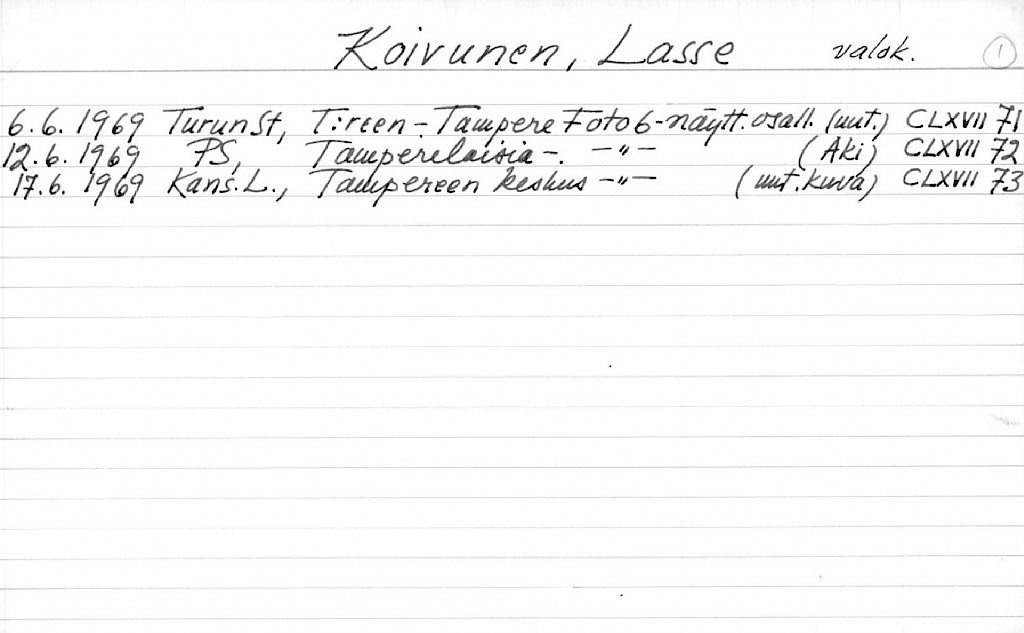 Koivunen, Lasse valok. 1
6.6.1969 TurunSt, T:reen - Tampere Foto 6-näytt. osall. (uut.) CLXVII 71
12.6.1969 PS, Tamperelaisia -. -"- (Aki) CLXVII 72
17.6.1969 Kans.L., Tampereen keskus -"- (uut.kuva) CLXVII 73